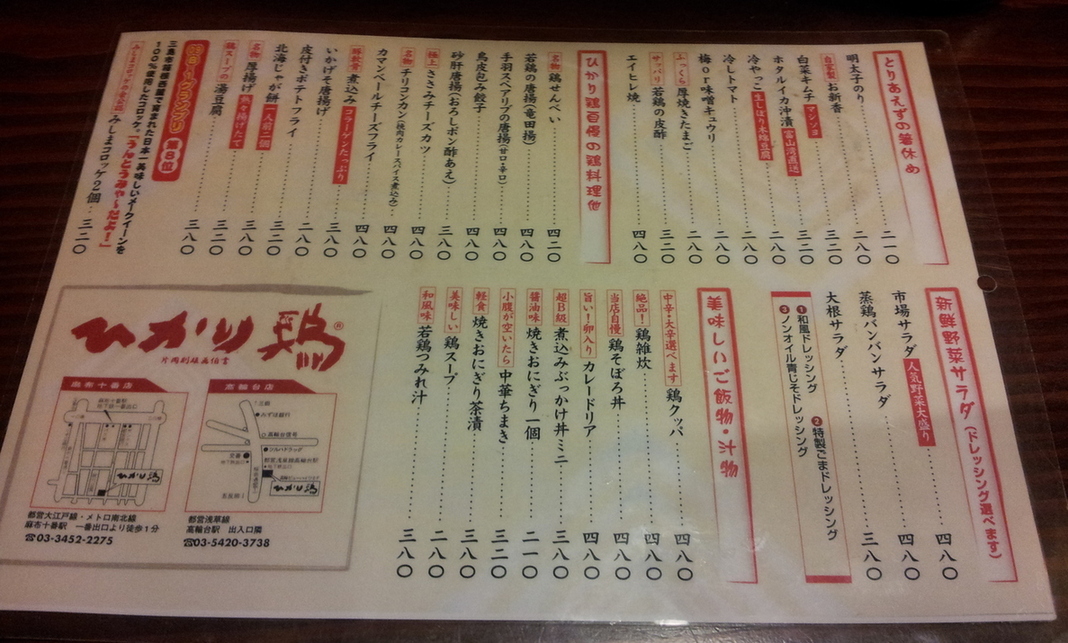 とりあえずの箸休め
明太子のり 二一〇
自家製 お新香 二八〇
白菜キムチ マシソヨ 三二〇
ホタルイカ沖漬 富山湾直送 三二〇
冷やっこ 生しぼり木綿豆腐 二八〇
冷しトマト 二八〇
梅or味噌キュウリ 二八〇
ふっくら 厚焼きたまご 三二〇
サッパリ 若鶏の皮酢 三二〇
エイヒレ焼 四八〇
ひかり鶏自慢の鶏料理他
名物 鶏せんべい 四二〇
若鶏の唐揚(竜田揚) 四八〇
手羽スペアリブの唐揚(甘口・辛口) 四八〇
鳥皮包み餃子 四八〇
砂肝唐揚(おろしポン酢あえ) 三八〇
極上 ささみチーズカツ 四八〇
名物 チリコンカン(焼肉カレースパイス煮込み) 四八〇
カマンベールチーズフライ 四八〇
豚軟骨 煮込み コラーゲンたっぷり 四八〇
いかげそ唐揚げ 三八〇
皮付きポテトフライ 二八〇
北海じゃが餅 一人前二個 三二〇
名物 厚揚げ 熱々揚げたて 三八〇
鶏スープの 湯豆腐 三二〇
B-1グランプリ 第8位
三島市箱根西麓で生まれた日本一美味しいメークイーンを
100%使用したコロッケ。「うんとうみゃ〜だよ!」
みしまコロッケの会公認 みしまコロッケ2個 三二〇
新鮮野菜サラダ(ドレッシング選べます)
市場サラダ 人気野菜大盛り 四八〇
蒸鶏バンバンサラダ 四八〇
大根サラダ 三八〇
❶和風ドレッシング ❷特製ごまドレッシング
❸ノンオイル青じそドレッシング
美味しいご飯物・汁物
中辛!大辛選べます 鶏クッパ 四八〇
絶品! 鶏雑炊 四八〇
当店自慢 鶏そぼろ丼 四八〇
旨い!卵入り カレードリア 四八〇
超B級 煮込みぶっかけ丼ミニ 三八〇
醤油味 焼きおにぎり一個 二一〇
小腹が空いたら 中華ちまき 三二〇
軽食 焼きおにぎり茶漬 三八〇
美味しい 鶏スープ 二八〇
和風味 若鶏つみれ汁 三八〇
ひかり鶏®
麻布十番店
都営大江戸線・メトロ南北線
麻布十番駅 一番出口より徒歩1分
☎03-3452-2275
高輪台店
都営浅草線
高輪台駅 出入口隣
☎03-5420-3738